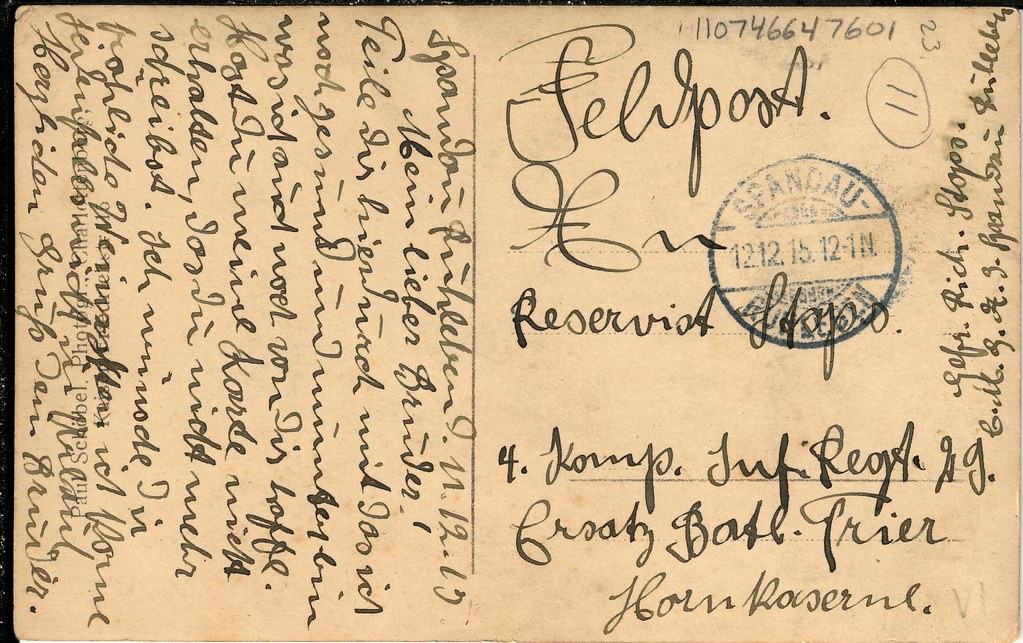 1107466447601
23
11
Feldpost.
An
Reservist Stops.
4. Komp. Inf. Regt. 29.
Ersatz Batl. Trier
Hornkaserne.
SPANDAU-
12.12.15. 12-1N.
RUHLEBEN
Gefr. Rich. Stops.
C. M. G. K. 3. Spandau Ruhleben
Spandau Ruhleben d. 11.12.15
Mein lieber Bruder!
Teile dir hierdurch mit das ich
noch gesund und munter bin
was ich auch noch von dir hoffe.
Hast du meine Karte nicht
erhalten, das du nicht mehr
schreibst. Ich wünsche du
fröhliche Weihnachten ich komme
jedenfalls nicht in Urlaub
Herzlichen Gruß dein Bruder.
Paul Schöbel, Photogr., Charl
VI